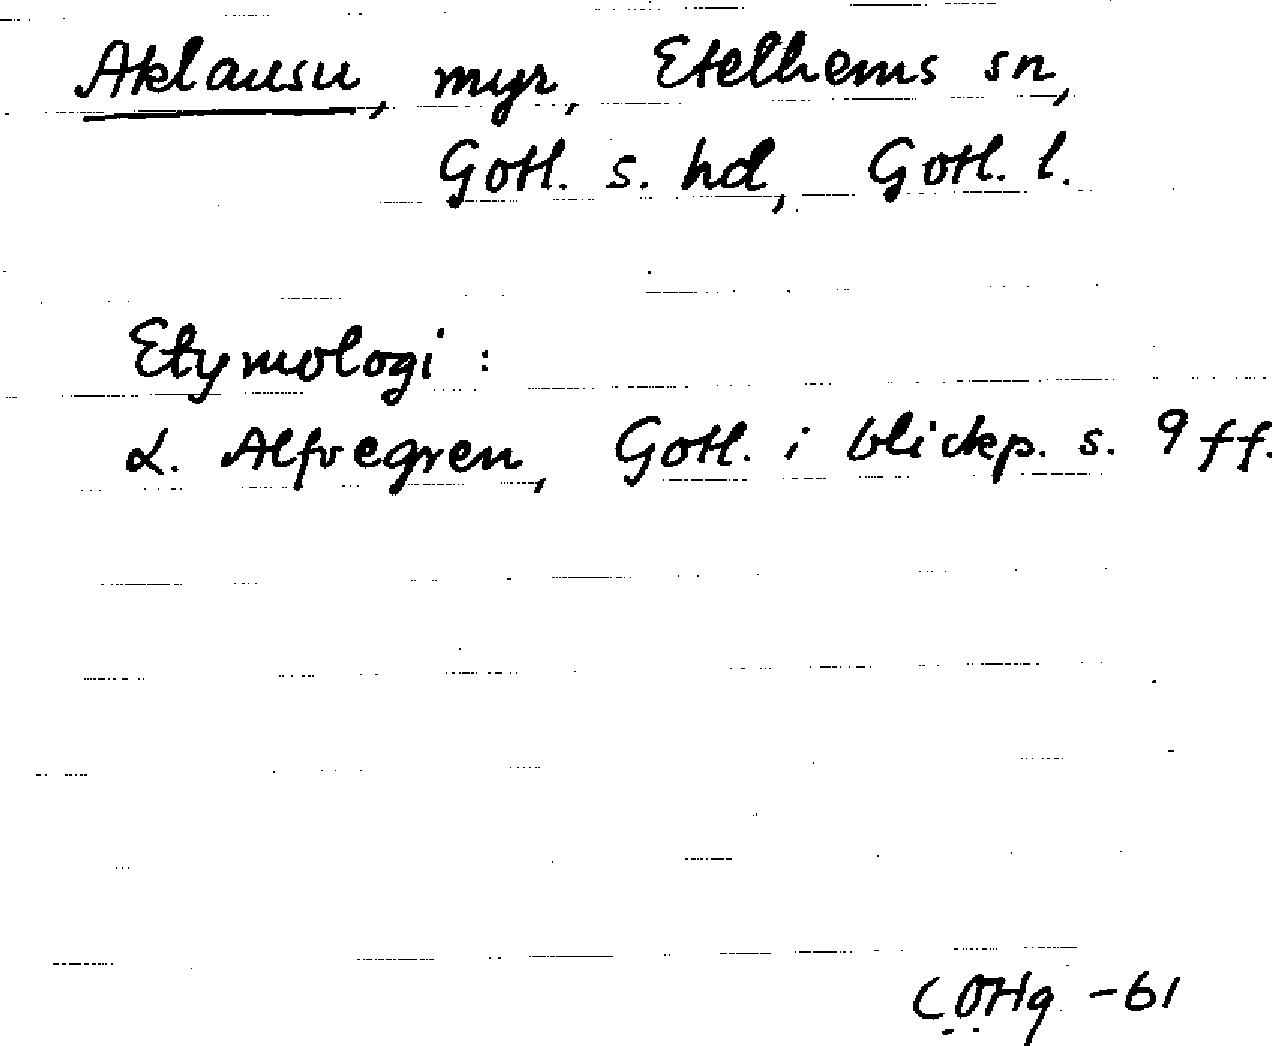 Aklausu, myr, Etelhems sn,
Gotl. s. hd, Gotl. l.
Etymologi:
L. Alfvegren, Gotl. i blickp. s. 9 ff.
-61